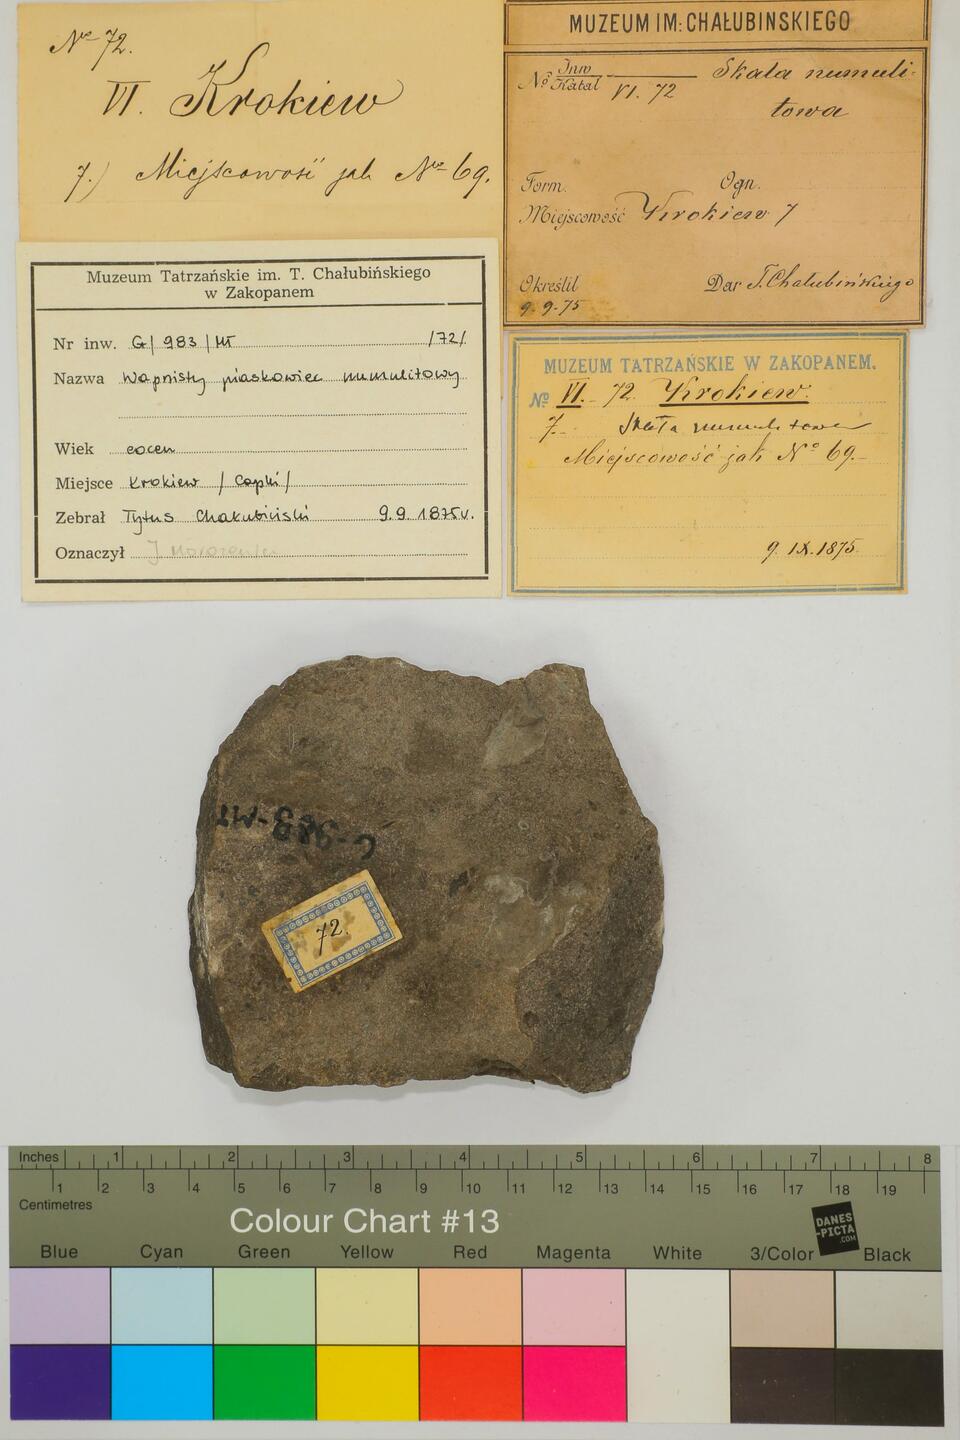 No 72.
VI. Krokiew
7.) Miejscowość jak No 69.
MUZEUM IM: CHAŁUBINSKIEGO
No Inw
Katal
VI. 72
Skała numuli-
towa
Form. Ogn.
Miejscowość Krokiew 7
Określił Dar T. Chałubińskiego
9.9.75
Muzeum Tatrzańskie im. T. Chałubińskiego
w Zakopanem
Nr inw. G/983/MT /72/
Nazwa Wapnisty piaskowiec numulitowy
Wiek eocen
Miejsce Krokiew /Capki/
Zebrał Tytus Chałubiński 9.9.1875r.
Oznaczył J
MUZEUM TATRZAŃSKIE W ZAKOPANEM.
No VI. 72. Krokiew.
7. Skała numulitowa
Miejscowość jak No 69.
9. IX. 1875.
G-983-MT
72.
Inches 1 2 3 4 5 6 7 8
1 2 3 4 5 6 7 8 9 10 11 12 13 14 15 16 17 18 19
Centimetres
Colour Chart #13
DANES
-PICTA
.COM
Blue Cyan Green Yellow Red Magenta White 3/Color Black